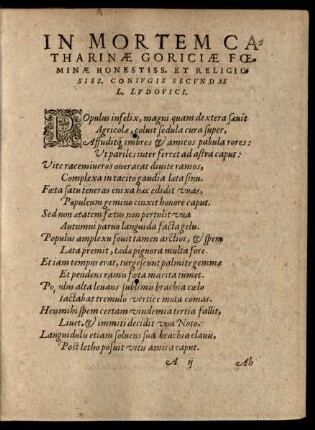 IN MORTEM CA-
THARINÆ GORICIÆ FŒ-
MINÆ HONESTISS. ET RELIGIO
SISS. CONIVGIS SECVNDAE
L. LVDOVICI.
POpulus infelix, magni quam dextera sæuit
Agricolæ, coluit sedula cura super,
Affudítq; imbres & amicos pabula rores:
Vt pariles inter ferret ad astra caput:
Vite racemiueros onerarat diuite ramos,
Complexa in tacito gaudia læta sinu.
Fœta satu teneras enixa hæc edidit vuas,
Populeum gemino cinxit honore caput.
Sed non ætatem fœtus non pertulit vua
Autumni paruo languida facta gelu.
Populus amplexu fouit tamen arctior, & spem
Læta premit, tædæ pignora multa fore.
Et iam tempus erat, turgescunt palmite gemmæ
Et pendens ramis fœta marita tumet.
Populus alta leuans sublimis brachia cælo
Iactabat tremulo vertice mota comas.
Heu mihi spem certam vindemia tertia fallit,
Liuet, & immiti decidit vua Noto.
Languidulis etiam soluens sua brachia clauis,
Post letho posuit vitis amica caput.
A ij Ah